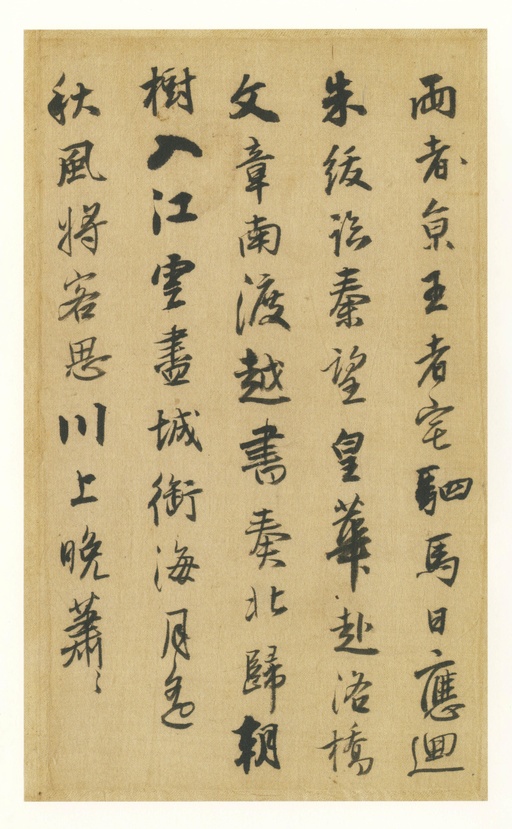 兩者京王者宅駟馬日應迴
朱紱臨秦望皇華赴洛橋
文章南渡越書奏北歸朝
樹入江雲盡城銜海月遙
秋風將客思川上晚蕭〻